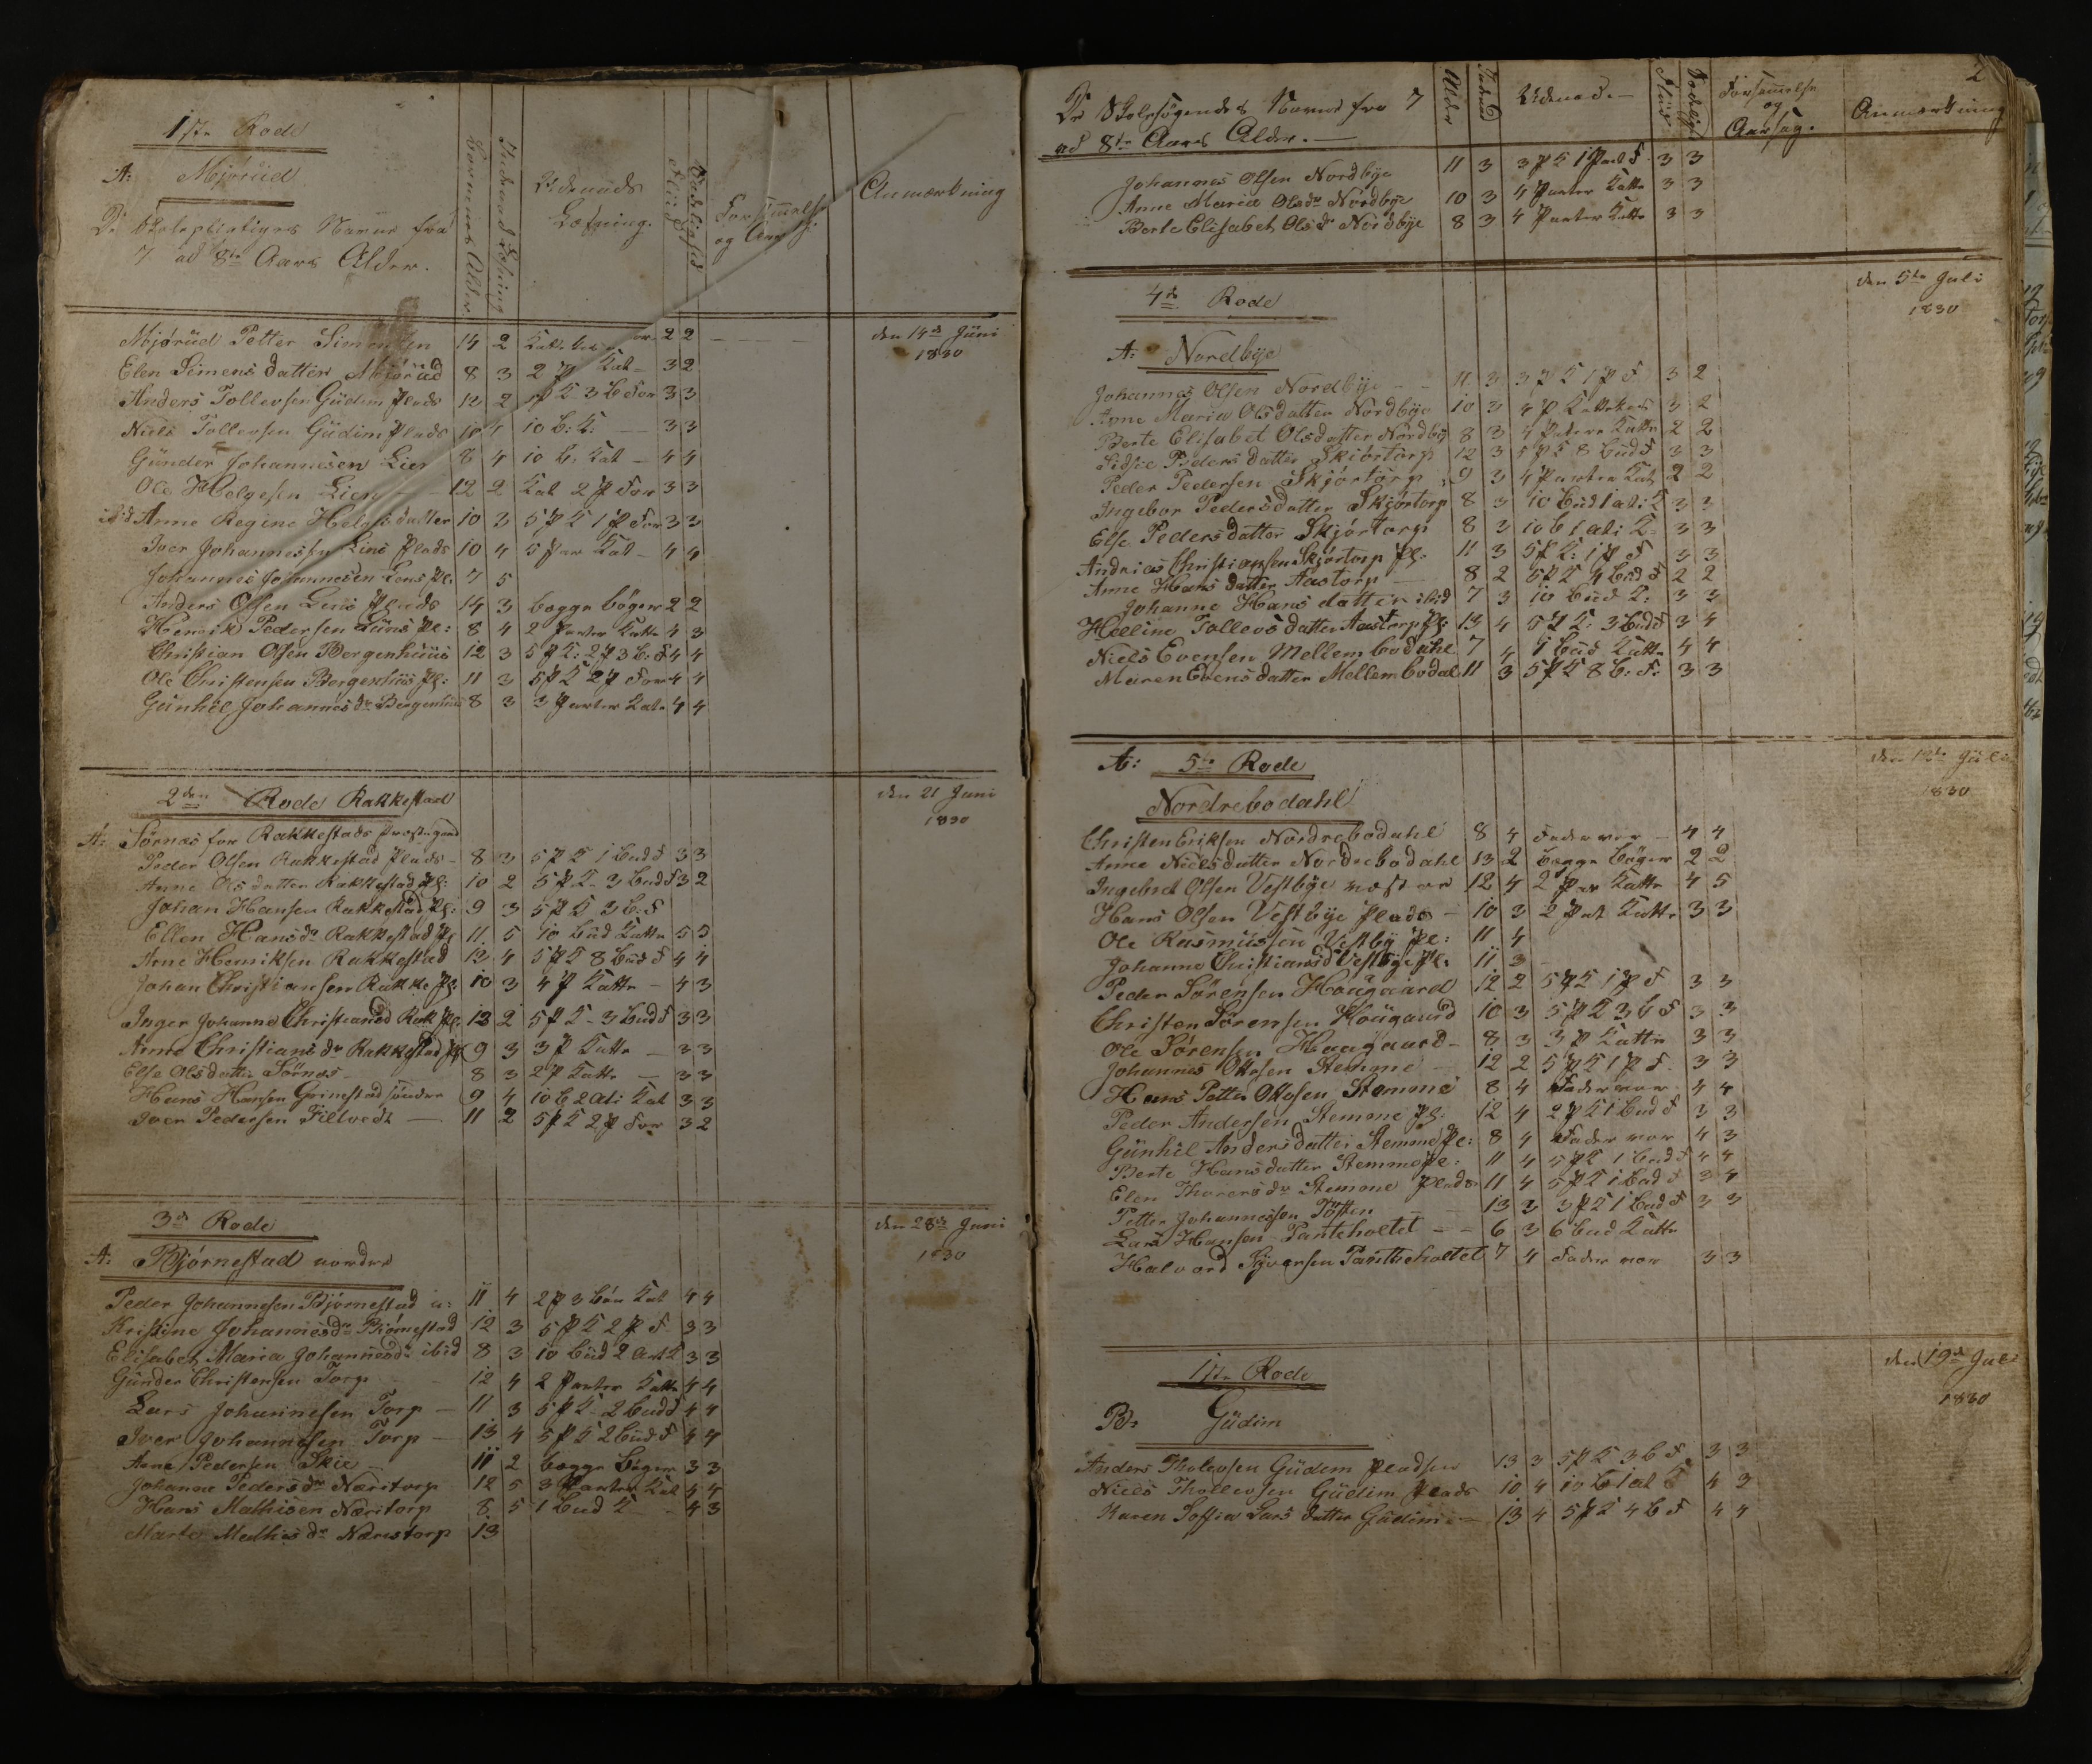 1ste Rode
A: Mjørüd
De Skolepligtiges Navne fra
7 ad 8te Aars Alder.
Barnenes Alder
Indvend Læsning
Udenads Læsning.
Fliid
Sædelighed
Forsømmelse og Aars
Anmærkning
Mjørüd Petter Simensen 14 2 2 2 den 14de Jüni
1830
Elen Simens datter Mjørüd 8 3 2 P Kat 3 2
Anders Tollevsen Güdim Plads 12 2 5 P K 3 B For 3 3
Niels Tollevsen Güdim Plads 10 4 10 b: K: 3 3
Günder Johannesen Lier 8 4 10 b. Kat 4 4
Ole Helgesen Lien 12 2 Kat 2 P For 3 3
ibid Anne Regine Helgisdatter 10 3 5 P K 1 P For 3 3
Iver Johannessen Liens Plads 10 4 5 Par Kat 4 4
Johannes Johannesen Lens Pl. 7 5
Anders Olsen Lens Plads 14 3 begge bøger 2 2
Henrik Pedersen Liens Pl: 8 4 2 Parter Katte 4 3
Christian Olsen Bergenhüüs 12 3 5 P K: 2 P 3 b: F 4 4
Ole Christensen Bergenhüs Pl: 11 3 5 P K 2 P For 4 4
Günhil Johannesdr Bergenhüs 8 3 3 Parter Kate 4 4
2den Rode Rakkestad den 21 Juni
1830
A: Sörnæs for Rakkestads Præstegaard
Peder Olsen Rakkestad Plads 8 3 5 P K 1 bud F 3 3
Anne Olsdatter Rakkestad Pl: 10 2 5 P K 3 bud F 3 2
Johan Hansen Rakkestad Pl: 9 3 5 P K 3 b: F
Ellen Hansdr Rakkestad Pl 11 5 10 bud Katte 5 5
Arne Henriksen Rakkestad 13 4 5 P K 8 bud F 4 4
Johan Christiansen Rakke Pl: 10 3 4 P Katte 4 3
Inger Johanne Christiansd Rak Pl. 12 2 5 P K 3 bud F 3 3
Anne Christiansdr Rakkestad Pl 9 3 3 P Katte 3 3
Else Olsdatter Sörnæs 8 3 2 P Katte 3 3
Hans Hansen Grimstad söndre 9 4 10 b 2 Ati Kat 3 3
Iver Pedersen Tiltvedt 11 2 5 P K 2 P For 3 2
3de Rode den 28de Juni
1830
A: Bjørnestad nordre
Peder Johannesen Bjørnestad n: 11 4 2 P 3 bön Kat 4 4
Kristine Johannesdr Biørnestad 12 3 5 P K 2 P F 3 3
Elisabet Maria Johannesdr ibid 8 3 10 bud 2 Art K 3 3
Günder Christensen Torp 12 4 2 Parter Katte 4 4
Lars Johannesen Torp 11 3 5 P K 2 bud F 4 4
Iver Johannesen Torp 13 4 5 P K 2 bud F 4 4
Arne Pedersen Skie 11 2 begge bøger 3 3
Johanne Pedersdr Næristorp 12 5 3 Parter Kat 4 4
Hans Mathisen Næritorp 8 5 1 bud K 4 3
Marte Mathisdr Næristorp 13
2
De Skolesøgendes Navne fra 7
ad 8te Aars Alder.
Alder
Indvend
Udenad.
Fliid
Sædelig
Forsømmelse og Aarsag.
Anmærkning
Johannes Olsen Nordbye 11 3 3 P K 1 Part F 3 3
Anne Maria Olsdr Nordbye 10 3 4 Parter Katte 3 3
Berte Elisabet Olsdr Nordbye 8 3 4 Parter Katte 3 3
4de Rode den 5te Juli
1830
A: Nordbye
Johannes Olsen Nordbye 11 3 3 P K 1 P F 3 2
Anne Maria Olsdatter Nordbye 10 3 4 P 3 2
Berte Elisabet Olsdatter Nordby 8 3 4 Patere Katte 2 2
Sidsie Pedersdatter Skiörtorp 12 3 5 P K 8 bud F 3 3
Peder Pedersen Skjörtorp 9 3 4 Parter Kat 2 2
Ingebor Pedersdatter Skjörtorp 8 3 10 bud 1 ati K 3 3
Else Pedersdatter Skjörtorp 8 3 10 b 1 ati K 3 3
Andrias Christiansen Skjörtorp Pl. 11 3 5 P K: 1 P F 3 3
Anne Hansdatter Aastorp 8 2 5 P K 4 bud F 2 2
Johanne Hans datter ibid 7 3 10 bud K: 3 3
Helline Tollevsdatter Aastorp Pl: 13 4 5 P K: 3 bud F 3 4
Niels Evensen Mellembodahl 7 4 4 bud Katte 4 4
Maren Evensdatter Mellembodal 11 3 5 P K 8 b: F: 3 3
A: 5te Rode den 12te Juli
1830
Nordrebodahl
Christen Eriksen Nordrebodahl 8 4 Fader vor 4 4
Anne Nielsdatter Nordrebodahl 13 2 begge bøger 2 2
Ingebret Olsen Vestbye 12 4 2 Par Katte 4 5
Hans Olsen Vestbye Plads 10 3 2 Part Katte 3 3
Ole Rasmüssen Vestby Pl: 11 4
Johanne Christiansd Vestbye Pl. 11 3
Peder Sörensen Houggaard 12 2 5 P K 1 P F 3 3
Christen Sörensen Hougaard 10 3 5 P K 3 b F 3 3
Ole Sörensen Haagaard 8 3 3 P Katte 3 3
Johannes Ottosen Stemme 12 2 5 P K 1 P F. 3 3
Hans Petter Ottosen Stemme 8 4 Fader vor 4 4
Peder Andersen Stemme Pl: 12 4 2 P K 1 bud F 3 3
Günhil Andersdatter Stemme Pl: 8 4 Fader vor 4 3
Berte Hansdatter Stemme Pl: 11 4 5 P K 1 bud F 4 4
Elen Thorersdr Stemme Plads 11 4 5 P K 1 bud F 3 4
Petter Johannessen Töften 13 3 3 P K 1 bud F 3 3
Lars Hansen Panteholtet 6 3 6 bud Katte
Halvord Syversen Panteholtet 7 4 Fader vor 3 3
1ste Rode den 19de Juli
1830
B: Güdim
Anders Tholevsen Güdem Pladsen 13 3 5 P K 3 b F. 3 3
Niels Thollevsen Güdim Plads 10 4 10 b 1 at K 4 3
Karen Soffia Larsdatter Güdim 13 4 5 P K 4 b F 4 4